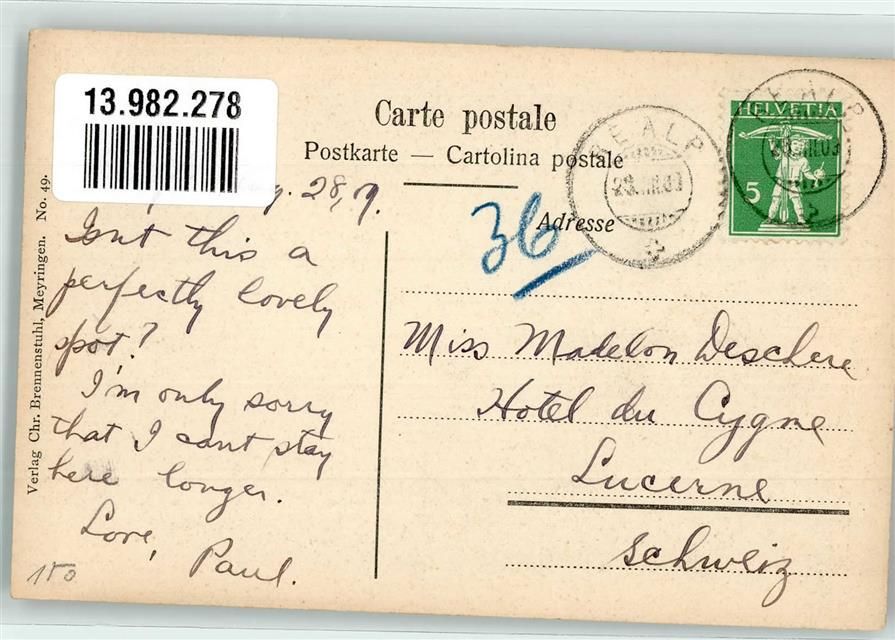 13.982.278
Carte postale
Postkarte — Cartolina postale
Adresse
HELVETIA
5
REALP
REALP
36
28, 09.
Isnt this a
perfectly lovely
spot?
I'm only sorry
that I cant stay
here longer.
Love,
Paul.
Miss Madelon Deschere
Hotel du Cygne
Lucerne
Schweiz
Verlag Chr. Brennenstuhl, Meyringen. No. 49.
150